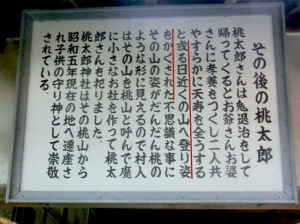 その後の桃太郎
桃太郎さんは鬼退治をして
帰ってくるとお爺さんお婆
さんに孝養をつくし二人共
やすらかに天寿を全うする
と或る日近くの山へ登り姿
をかくされた不思議な事に
その山の姿がだんだん桃の
ような形に見えるので村人
はその山を桃山と呼んで麓
に小さなお社を作って桃太
郎さんを祀りました。
桃太郎神社はその桃山から
昭和五年現在の地へ遷座さ
れ子供の守り神として崇敬
されている。